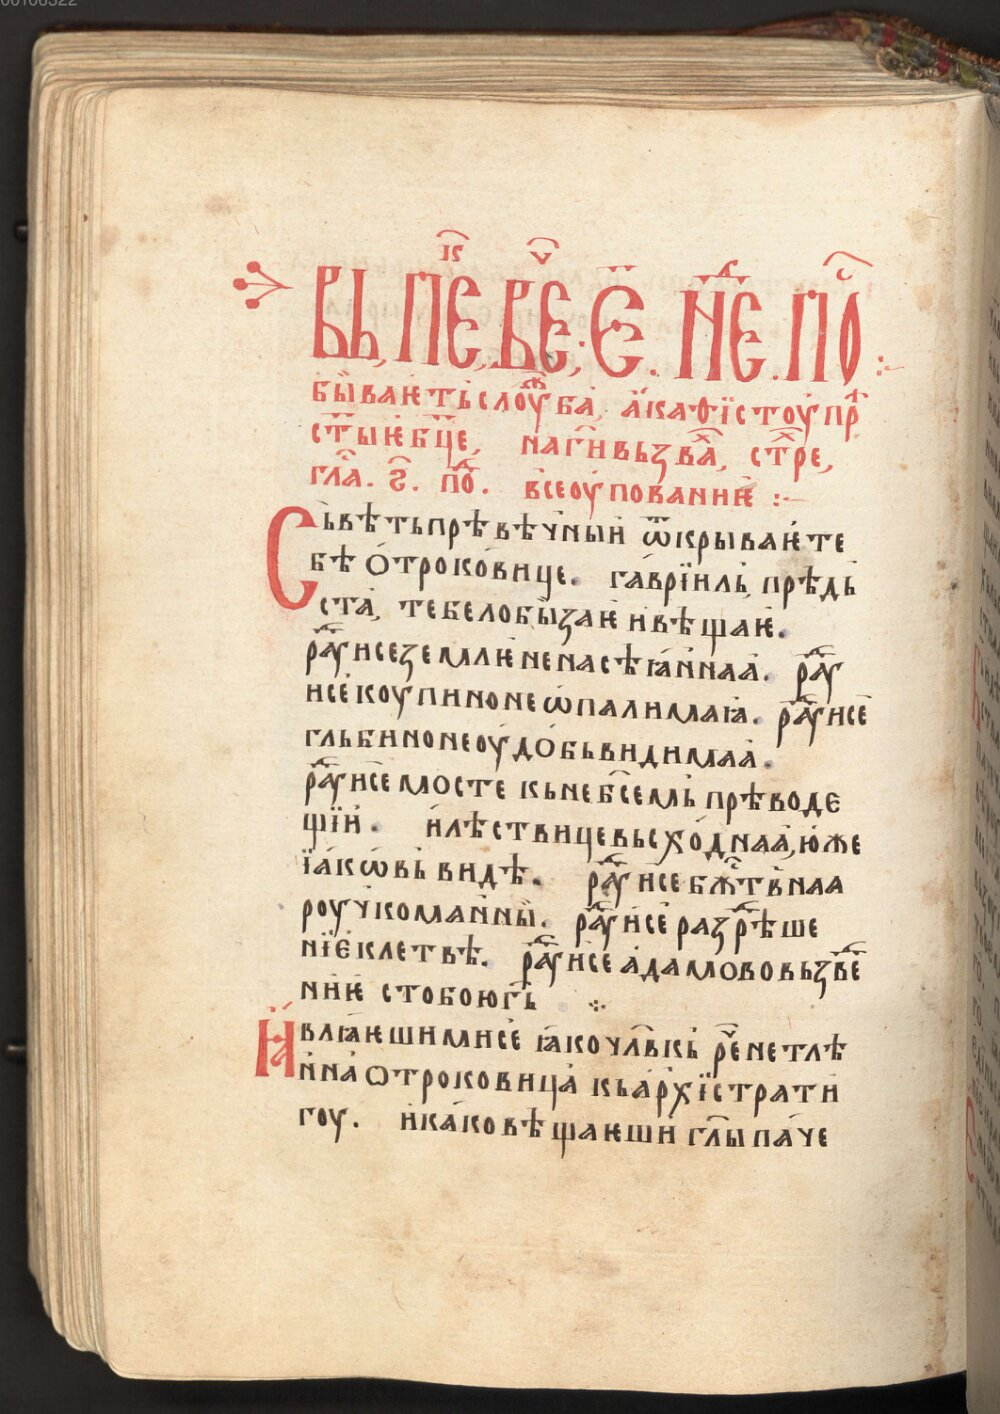 00108322
Вь пе҃к ве҃ч. є҃. нⷣе. поⷭ
бываѥть слоуⷤба, акаѳїстоу прⷣѣ
ст҃ыѥ бц҃е, на гн҃ вьзваⷯ, стⷯре,
глⷭа. ѕ҃. поⷣ. все оупованниѥ :~
Сьвѣть прѣвѣчный ѿкрываѥ те
бѣ ѻтроковице. гаврїиль, прѣдь
ста, тебе лобызаѥ и вѣщаѥ.
раⷣуи се земліе ненасѣꙗннаа. раⷣу
и се коупино неѡпалимаꙗ. раⷣуи се
гльбино неоудобьвидимаа.
раⷣуи се мосте кь небⷭемь прѣводе
щїи. и лѣствице высходнаа, юже
їакѡвь видѣ. раⷣуи се бжⷭтвнаа
роучко манны. раⷣуи се разⷣрѣше
нїе клетвѣ. раⷣуи се адамово вьзве
ниѥ с тобою гь҃ ⁘
Ꙗвлꙗѥши ми се ꙗко чл҃вкь, рⷱе нетлѣ
нна отроковица кь архїстрати
гоу. и како вѣщаѥши гл҃ы паче